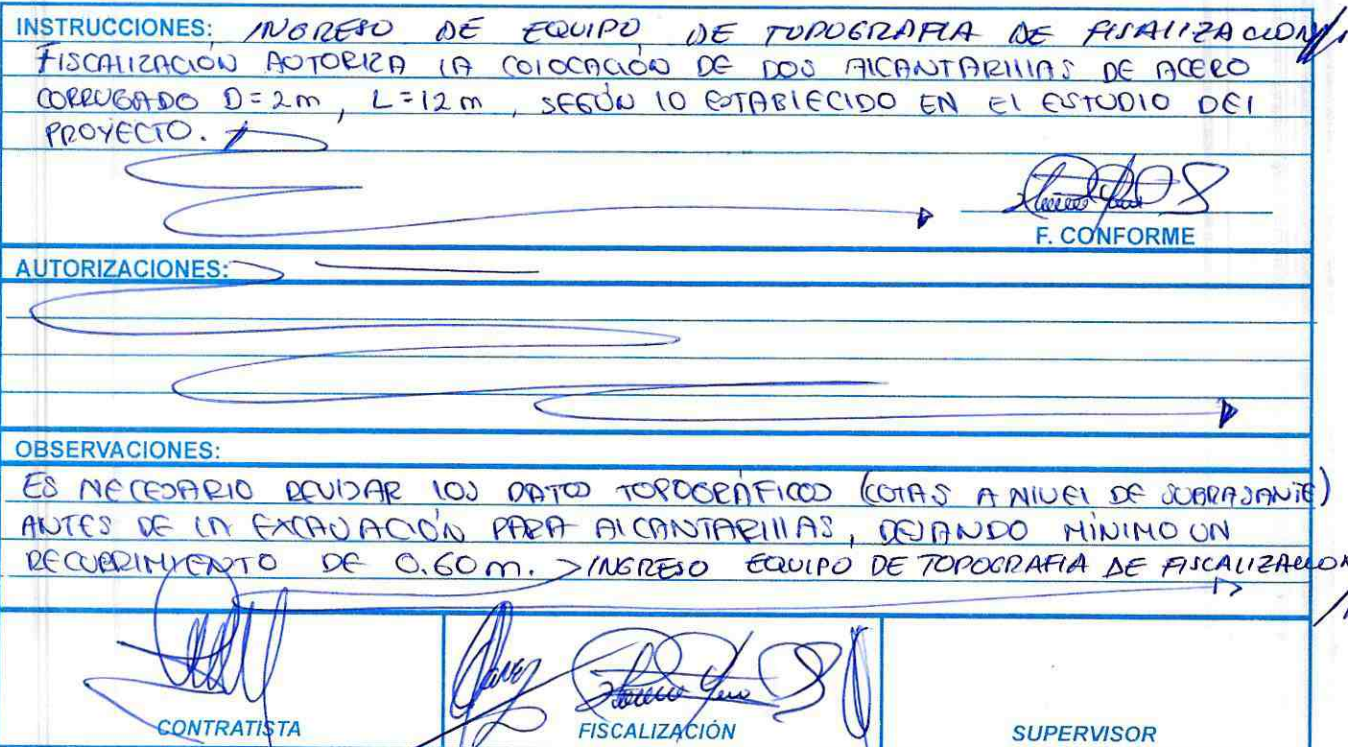 INSTRUCCIONES: INGRESO DE EQUIPO DE TOPOGRAFIA DE FISALIZACION
FISCALIZACIÓN AUTORIZA LA COLOCACIÓN DE DOS ALCANTARILLAS DE ACERO
CORRUGADO D=2m, L=12m, SEGÚN LO ESTABLECIDO EN EL ESTUDIO DEL
PROYECTO.
F. CONFORME
AUTORIZACIONES:
OBSERVACIONES:
ES NECESARIO REVISAR LOS DATOS TOPOGRÁFICOS (COTAS A NIVEL DE SUBRASANTE)
ANTES DE LA EXCAVACIÓN PARA ALCANTARILLAS, DEJANDO MÍNIMO UN
RECUBRIMIENTO DE 0.60m. > INGRESO EQUIPO DE TOPOGRAFIA DE FISCALIZACION
CONTRATISTA
FISCALIZACIÓN
SUPERVISOR